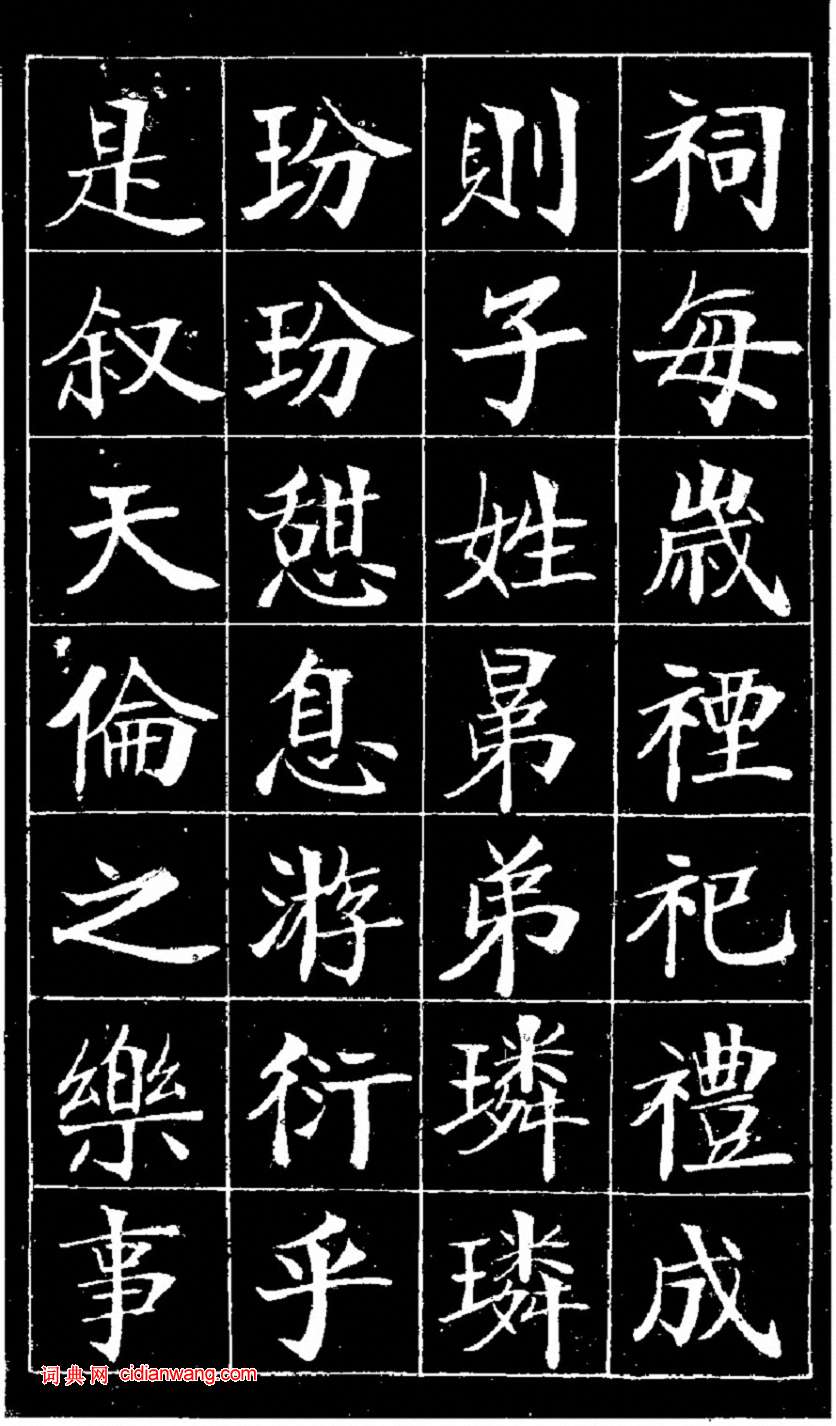 祠每歲禋祀禮成
則子姓晜弟璘璘
玢玢憇息游衍乎
是叙天倫之樂事
词典网 cidianwang.com